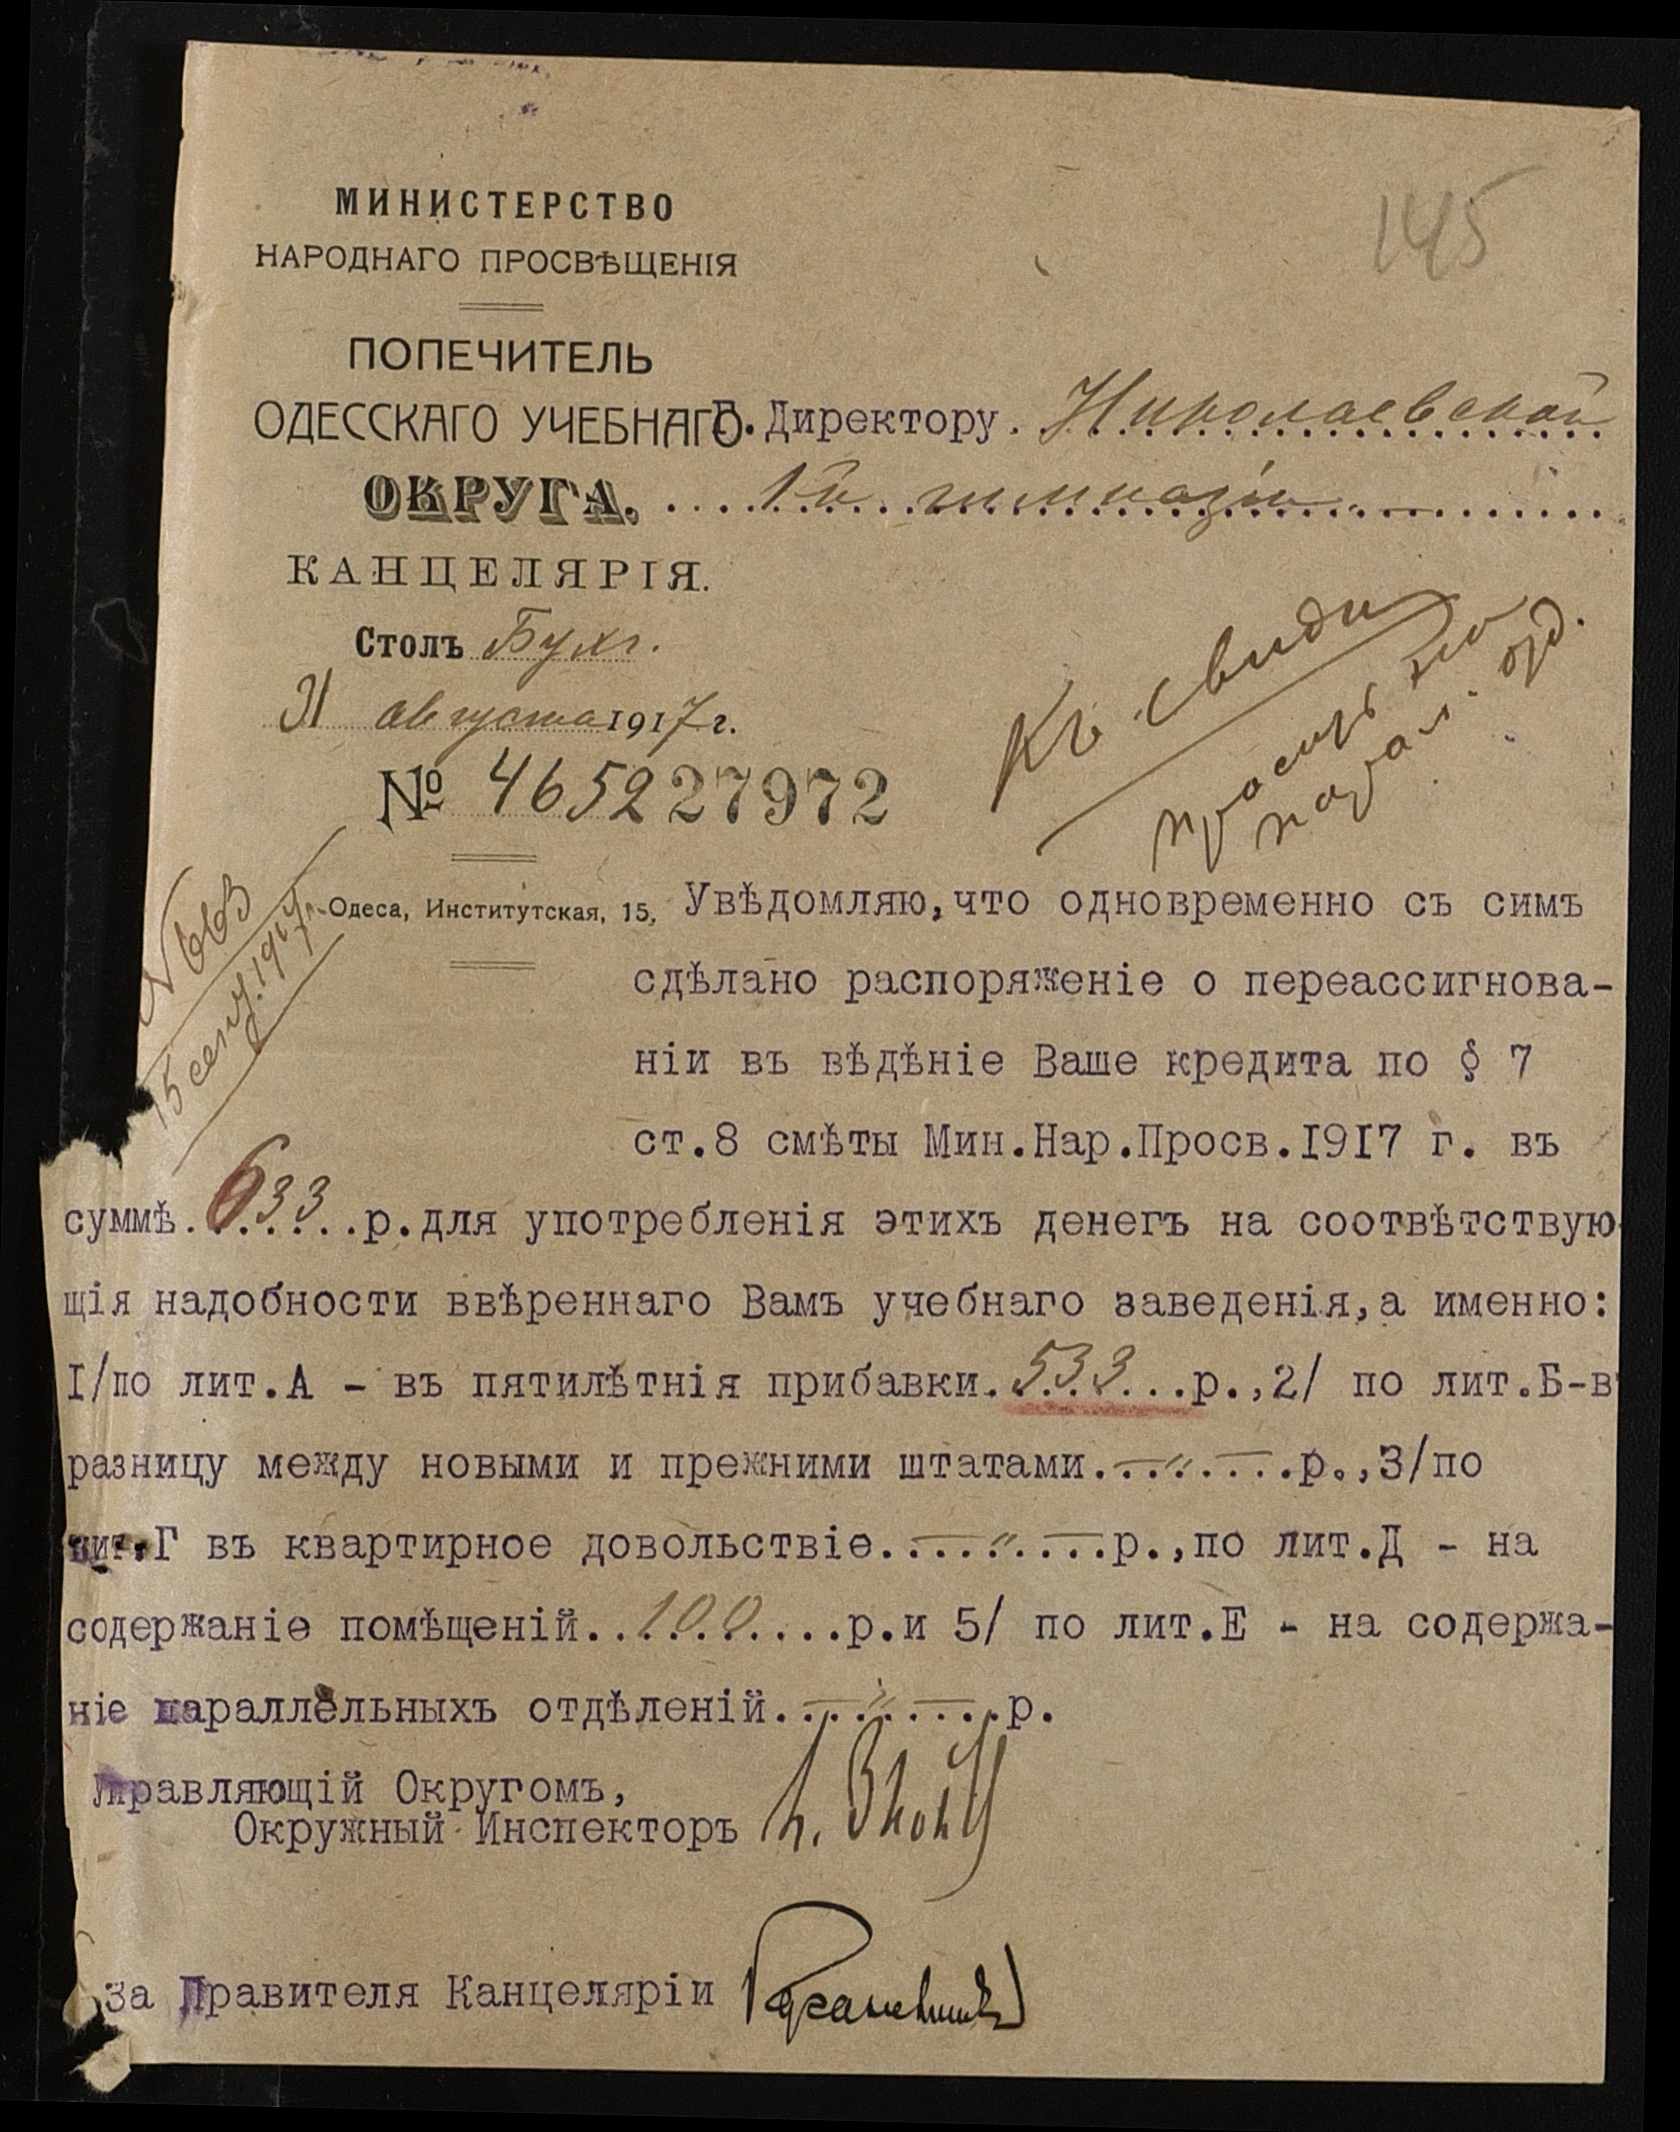 145
МИНИСТЕРСТВО
НАРОДНАГО ПРОСВѢЩЕНІЯ
ПОПЕЧИТЕЛЬ
ОДЕССКАГО УЧЕБНАГО
ОКРУГА.
КАНЦЕЛЯРІЯ.
Столъ Бухг.
31 августа 1917 г.
№ 465227972
Одеса, Институтская, 15,
Г. Директору. Николаевской
1й гимназіи
Къ свѣдѣ
N 663
15 сент. 1917 г.
Увѣдомляю,что одновременно съ симъ
сдѣлано распоряженіе о переассигнова-
ніи въ вѣдѣніе Ваше кредита по § 7
ст.8 смѣты Мин.Нар.Просв.I9I7 г. въ
суммѣ. 633 р.для употребленія этихъ денегъ на соотвѣтствую-
щія надобности ввѣреннаго Вамъ учебнаго заведенія,а именно:
I/по лит.А - въ пятилѣтнія прибавки. 533 р.,2/ по лит.Б-въ
разницу между новыми и прежними штатами. — " — р.,3/по
лит.Г въ квартирное довольствіе. — " — р.,по лит.Д - на
содержаніе помѣщеній. 100 р.и 5/ по лит.Е - на содержа-
ніе параллельныхъ отдѣленій. — " — р.
Управляющій Округомъ,
Окружный Инспекторъ
за Правителя Канцеляріи